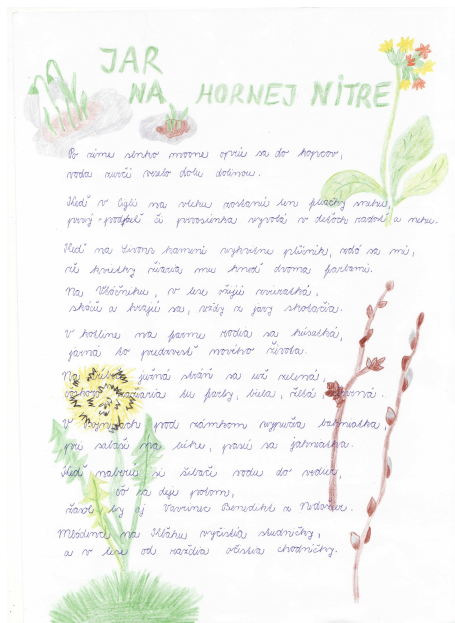 JAR
NA HORNEJ NITRE
Po zime slnko mocne oprie sa do kopcov,
voda zurčí veselo dolu dolinou.
Keď v Cigli na vleku zostanú len fliačky snehu,
prvý podbeľ či prvosienka vyvolá v deťoch radosť a nehu.
Keď na kameni vykvitne pľúcnik,
že kvietky žiaria mu hneď dvoma farbami.
Na Vtáčniku, v lese ožijú zvieratká,
skáču a hrajú sa, všade z jari
V kotline na farme rodia sa húsatká,
jarná to predzvesť nového života.
Na južná stráň sa už zelená,
žiaria tu farby, biela, žltá,
V Bojniciach pod zámkom vypučia bahniatka,
pri salaši na lúke, pasú sa jahniatka.
Keď naberú si žiaci vodu do vedier,
čo sa deje potom,
žasol by aj Vavrinec Benedikt z Nedožier.
Mládenci na Kľaku vyčistia studničky,
a v lese od raždia očistia chodníčky.